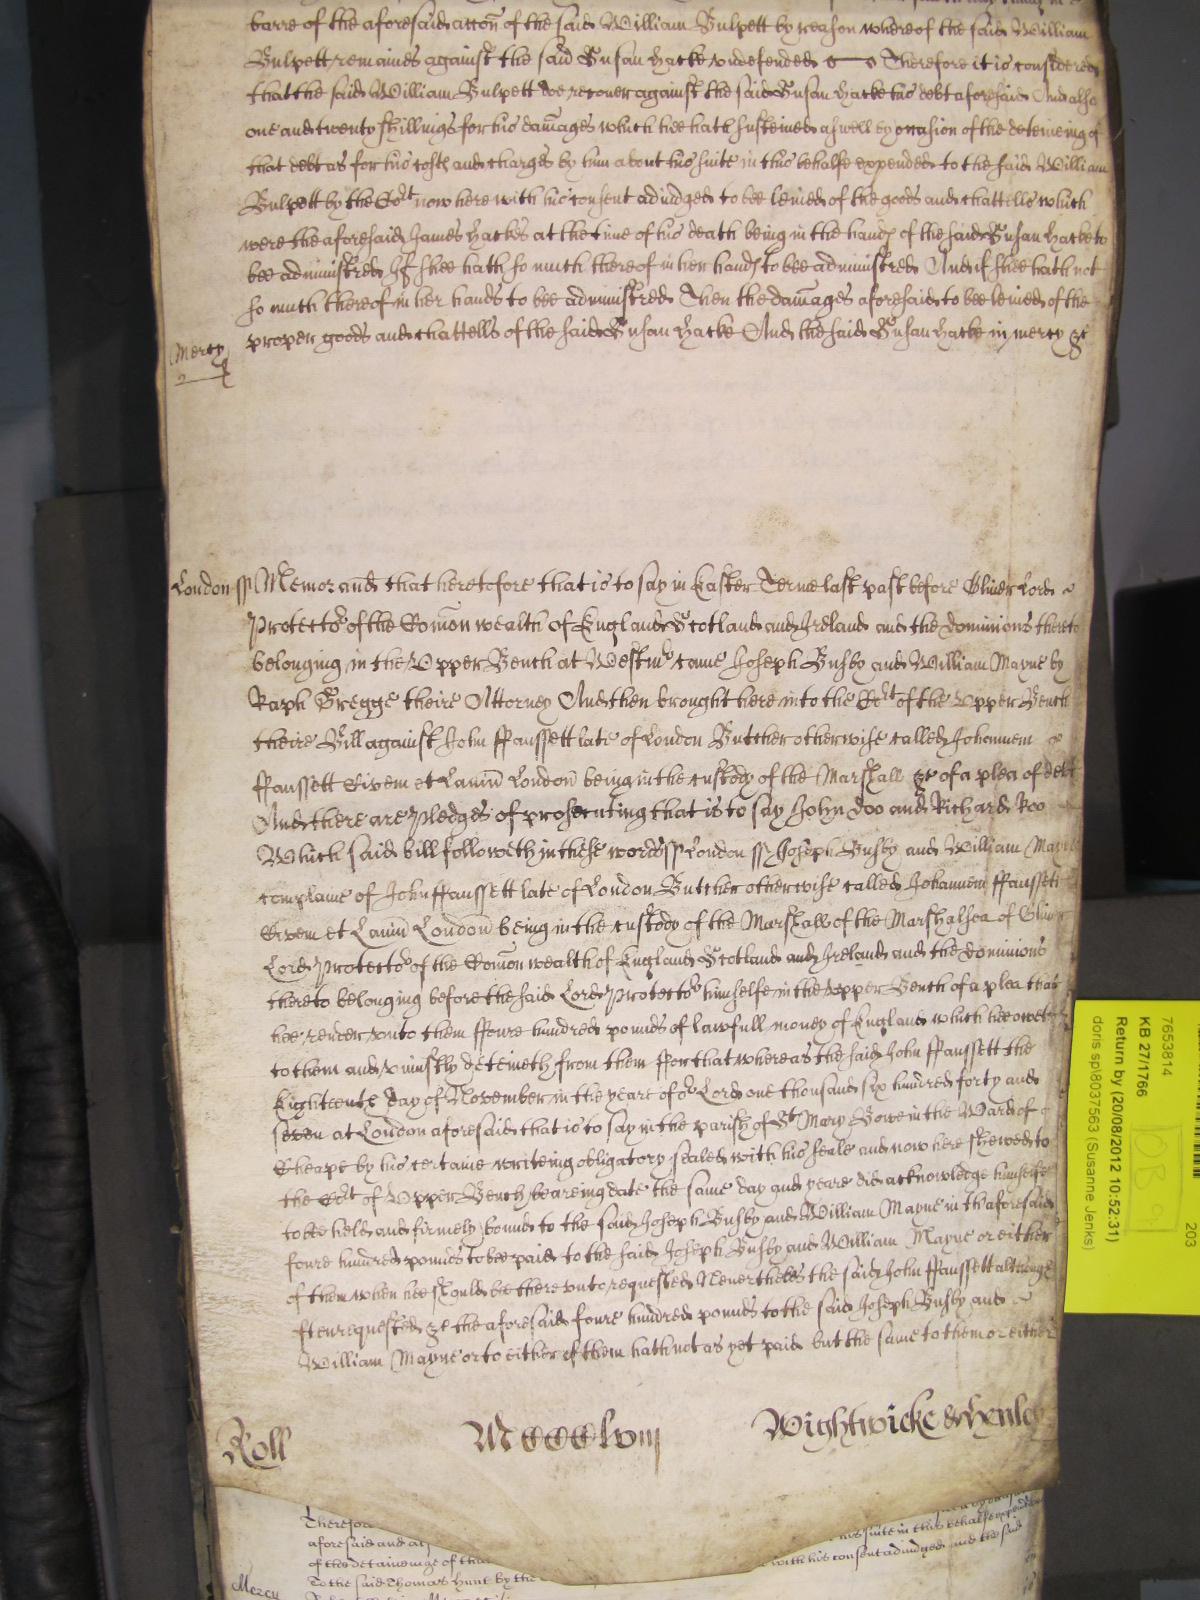 barre of the aforesaid accon of the said William Bulpett by reason whereof the said William
Bulpett remaines against the said Susan Hacke vndefended Therefore it is considered
that the said William Bulpett doe recouer against the said Susan Hacke his debt aforesaid And also
one and twenty shillings for his damages which hee hath susteined aswell by occasion of the deteineing of
that debt as for his costs and charges by him about his suite in this behalfe expended to the said William
Bulpett by the Cort now here with his consent adiudged to bee leuied of the goods and chattells which
were the aforesaid James Hackes at the time of his death being in the hands of the said Susan Hacke to
bee administred If shee hath so much thereof in her hands to bee administred And if shee hath not
so much thereof in her hands to bee administred Then the damages aforesaid to bee leuied of the
proper goods and chattells of the said Susan Hacke And the said Susan Hacke in mercy &c
Mercy
London ss Memorand that heretofore that is to say in Easter Terme last past before Oliuer Lord
Protector of the Comon wealth of England Scotland and Ireland and the dominions thereto
belonging in the Vpper Bench at Westmr came Joseph Busby and William Mayne by
Raph Gregge theire Attorney And then brought here into the Cort of the Vpper Bench
theire Bill against John ffaussett late of London Butcher otherwise called Johannem
ffaussett Civem et Laniu London being in the custody of the Marshall &c of a plea of debt
And there are pledges of prosecuting that is to say John Doo and Richard Roo
Which said bill followeth in these words ss London ss Joseph Busby and William Mayne
complaine of John ffaussett late of London Butcher otherwise called Johannem ffaussett
Civem et Laniu London being in the custody of the Marshall of the Marshalsea of Oliuer
Lord Protector of the Comon wealth of England Scotland and Ireland and the Dominions
thereto belonging before the said Lord Protector himselfe in the Vpper Bench of a plea that
hee render vnto them ffoure hundred pounds of lawfull money of England which hee oweth
to them and vniustly deteineth from them ffor that whereas the said John ffaussett the
Eighteenth day of November in the yeare of or Lord one thousand six hundred forty and
seven at London aforesaid that is to say in the parish of St Mary Bowe in the Ward of
Cheape by his certaine writeing obligatory sealed with his seale and now here shewed to
the Cort of Vpper Bench beareing date the same day and yeare did acknowledge himselfe
to bee held and firmely bound to the said Joseph Busby and William Mayne in thaforesaid
foure hundred pounds to bee paid to the said Joseph Busby and William Mayne or either
of them when hee should be therevnto requested Neuertheles the said John ffaussett although
often requested &c the aforesaid foure hundred pounds to the said Joseph Busby and
William Mayne or to either of them hath not as yet paid but the same to them or either
Roll MCCCClviij Wightwicke & Henley
aforesaid and
of the detaineinge of
To the said Thomas Hunt by the
his suite in this behalfe expended
with his consent adiudged and the said
Mercy
7653814
KB 27/1766
Return by (20/08/2012 10:52:31)
doris sp\8037563 (Susanne Jenks)
203